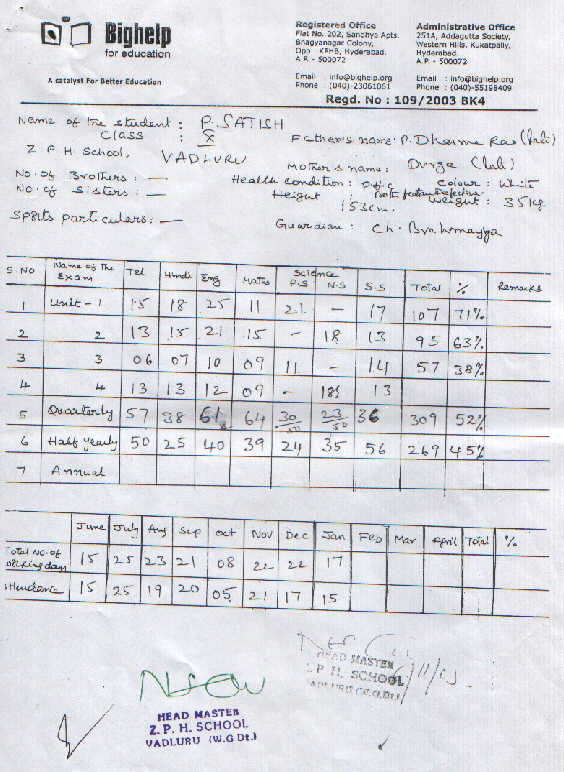 Bighelp
for education
A catalyst For Better Education
Registered Office
Flat No. 202, Sandhya Apts.
Bhagyanagar Colony,
Opp KPHB, Hyderabad.
A.P. - 500072
Email : info@bighelp.org
Phone : (040)-23061061
Administrative Office
251A, Addagutta Society,
Western Hills, Kukatpally,
Hyderabad.
A.P. - 500072
Email : info@bighelp.org
Phone : (040)-55198409
Regd. No : 109/2003 BK4
Name of the student : P. SATISH
Class : X
Father's name: P. Dharma Rao
Z P H School, VADLURU
Mother's name: Durga
No. of Brothers : —
Health condition : Colour : White
No. of Sisters : —
Height 153cm. Weight : 35 kg.
Sports particulars : —
Guardian : Ch. Brahmayya
S NO Name of the Exam Tel Hindi Eng Maths Science P.S N.S S.S Total % Remarks
1 Unit - 1 15 18 25 11 21 – 17 107 71%
2 2 13 15 21 15 – 18 13 95 63%
3 3 06 07 10 09 11 – 14 57 38%
4 4 13 13 12 09 – 13
5 Quarterly 57 38 61 64 30/50 23/50 36 309 52%
6 Half yearly 50 25 40 39 24 35 56 269 45%
7 Annual
June July Aug Sep Oct Nov Dec Jan Feb Mar April Total %
Total No. of working days 15 25 23 21 08 22 22 17
Attendance 15 25 19 20 05 21 17 15
HEAD MASTER
Z.P.H. SCHOOL
VADLURU (W.G.Dt.)
HEAD MASTER
Z.P.H. SCHOOL
VADLURU (W.G.Dt.)